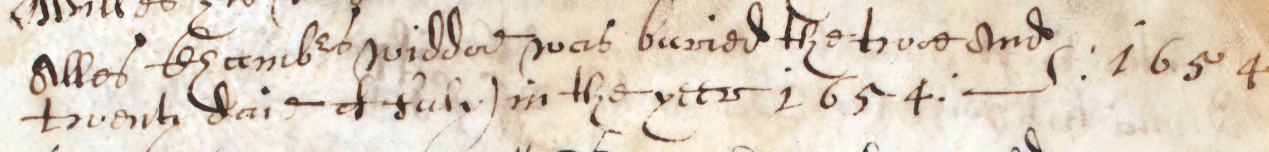 Alles Chambrs widdow was buried the twoe And
twenty daie of July in the yeer 1654. : 1654